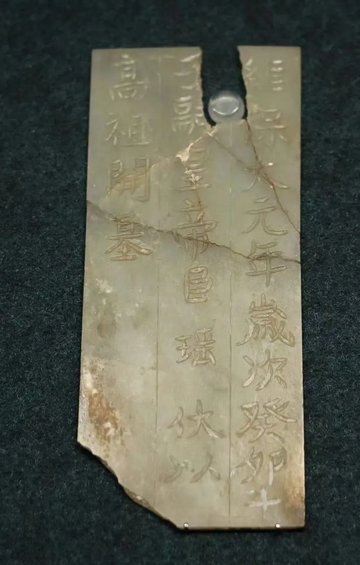 維保大元年歲次癸卯十
子嗣皇帝臣瑤伏以
高祖開基